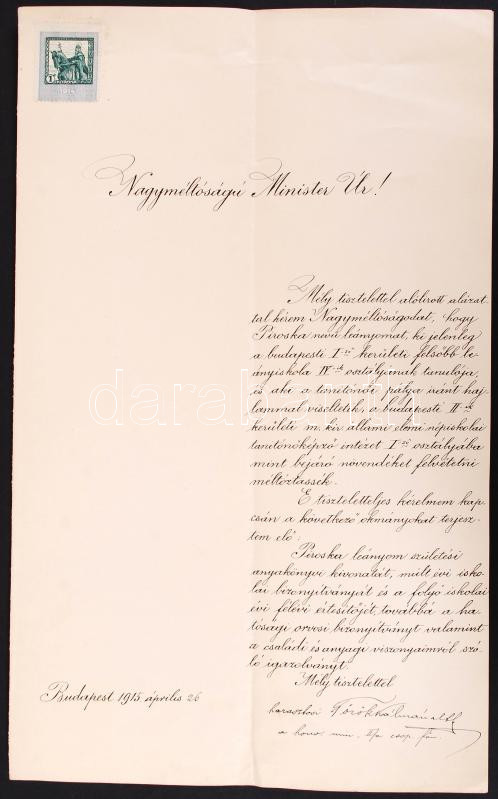 Nagyméltóságú Minister Úr!
Mély tisztelettel alólirott alázat-
tal kérem Nagyméltóságodat, hogy
Piroska nevű leányomat, ki jelenleg
a budapesti I-ső kerületi felsőbb le-
ányiskola IV-ik osztályának tanulója,
és aki a tanítónői pálya iránt haj-
lammal viseltetik, a budapesti II-ik
kerületi m. kir állami elemi népiskolai
tanítónőképző intézet I-ső osztályába
mint bejáró növendéket felvétetni
méltóztassék.
E tiszteletteljes kérelmem kap-
csán a következő okmányokat terjesz-
tem elő:
Piroska leányom születési
anyakönyvi kivonatát, múlt évi isko-
lai bizonyítványát és a folyó iskolai
évi félévi értesítőjét, továbbá a ha-
tósági orvosi bizonyítványt valamint
a családi és anyagi viszonyaimról szó-
ló igazolványt.
Mély tisztelettel
Budapest 1915 április 26
haraszthosi Török Kálmán
a honv. min. csop. főn.
darabanth